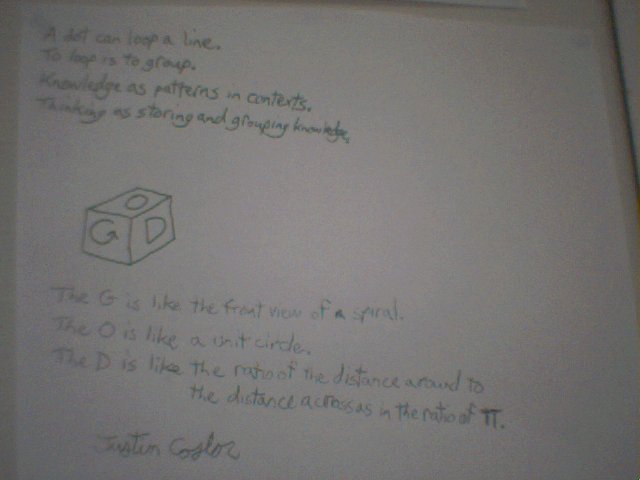 A dot can loop a line.
To loop is to group.
Knowledge as patterns in contexts.
Thinking as storing and grouping knowledge.
O
G D
The G is like the front view of a spiral.
The O is like a unit circle.
The D is like the ratio of the distance around to
the distance across as in the ratio of π.
Justin Coslor